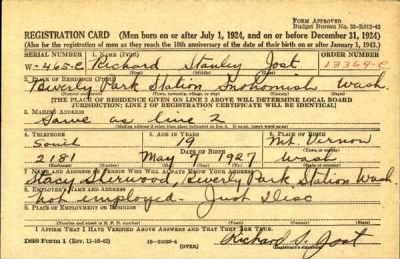 FORM APPROVED
Budget Bureau No. 33-R012-42
REGISTRATION CARD (Men born on or after July 1, 1924, and on or before December 31, 1924)
(Also for the registration of men as they reach the 18th anniversary of the date of their birth on or after January 1, 1943.)
SERIAL NUMBER 1. NAME (Print) ORDER NUMBER
W-465-C Richard Stanley Jost 13369-C
(First) (Middle) (Last)
2. PLACE OF RESIDENCE (Print)
Beverly Park Station, Snohomish Wash.
(Number and street) (Town, township, village, or city) (County) (State)
[THE PLACE OF RESIDENCE GIVEN ON LINE 2 ABOVE WILL DETERMINE LOCAL BOARD
JURISDICTION; LINE 2 OF REGISTRATION CERTIFICATE WILL BE IDENTICAL]
3. MAILING ADDRESS
Same as line 2
4. TELEPHONE 5. AGE IN YEARS 6. PLACE OF BIRTH
South 19 Mt. Vernon
DATE OF BIRTH
2181 May 7 1927 Wash
7. NAME AND ADDRESS OF PERSON WHO WILL ALWAYS KNOW YOUR ADDRESS
Stacy Sherwood, Beverly Park Station Wash.
8. EMPLOYER'S NAME AND ADDRESS
not employed - Just Disc
9. PLACE OF EMPLOYMENT OR BUSINESS
(Number and street or R. F. D. number) (Town) (County) (State)
I AFFIRM THAT I HAVE VERIFIED ABOVE ANSWERS AND THAT THEY ARE TRUE.
DSS Form 1 (Rev. 11-16-42) (OVER) Richard S. Jost
(Registrant's signature)